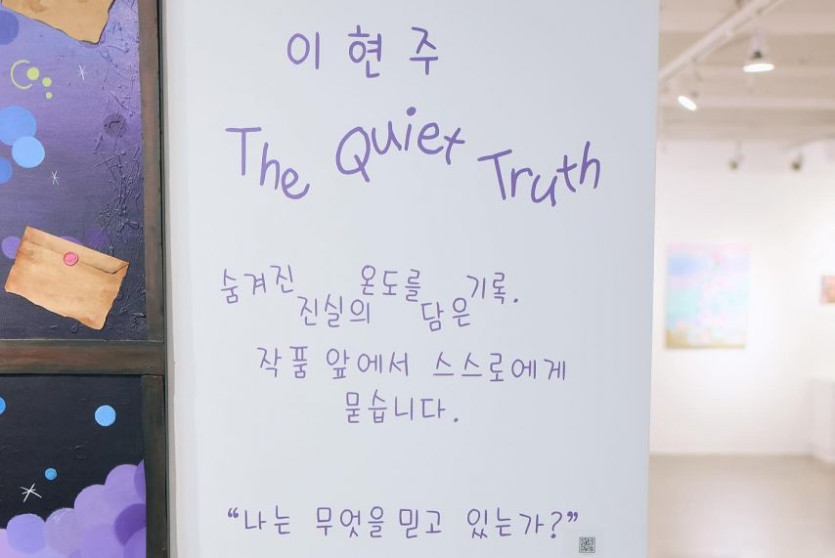 이현주
The Quiet Truth
숨겨진 진실의 온도를 담은 기록.
작품 앞에서 스스로에게
묻습니다.
“나는 무엇을 믿고 있는가?”